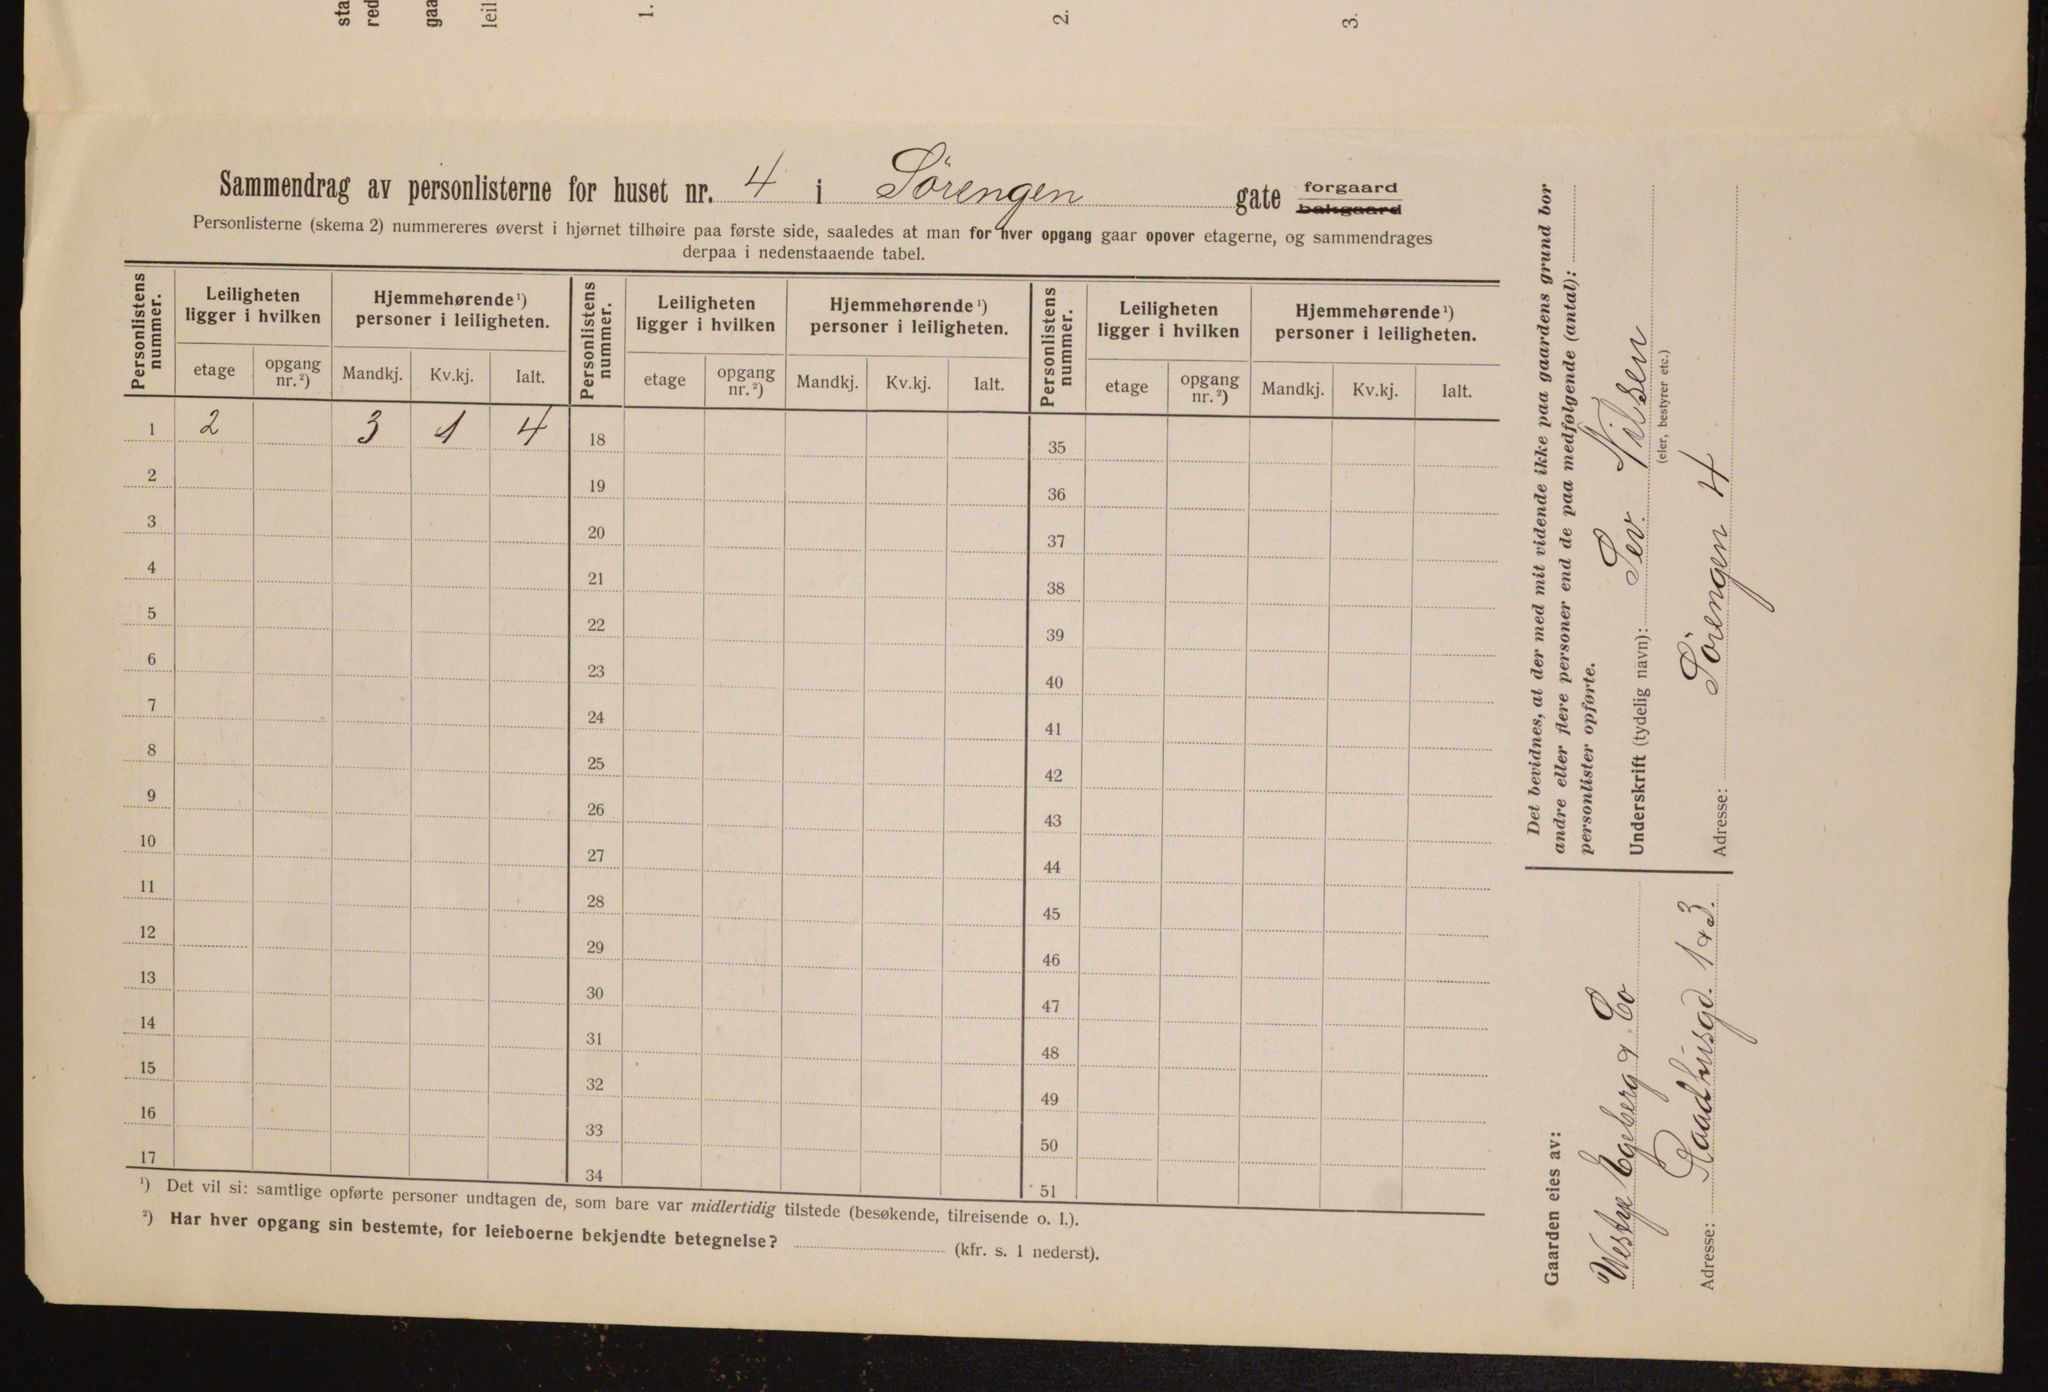 sta
red
gaa
leil
1.
2.
3.
Sammendrag av personlisterne for huset nr. 4 i Sörengen gate forgaard bakgaard
Personlisterne (skema 2) nummereres øverst i hjørnet tilhøire paa første side, saaledes at man for hver opgang gaar opover etagerne, og sammendrages
derpaa i nedenstaaende tabel.
Personlistens nummer. Leiligheten ligger i hvilken Hjemmehørende ¹) personer i leiligheten. Personlistens nummer. Leiligheten ligger i hvilken Hjemmehørende ¹) personer i leiligheten. Personlistens nummer. Leiligheten ligger i hvilken Hjemmehørende ¹) personer i leiligheten.
etage opgang nr. ²) Mandkj. Kv.kj. Ialt. etage opgang nr. ²) Mandkj. Kv.kj. Ialt. etage opgang nr. ²) Mandkj. Kv.kj. Ialt.
1 2 3 1 4 18 35
2 19 36
3 20 37
4 21 38
5 22 39
6 23 40
7 24 41
8 25 42
9 26 43
10 27 44
11 28 45
12 29 46
13 30 47
14 31 48
15 32 49
16 33 50
17 34 51
¹) Det vil si: samtlige opførte personer undtagen de, som bare var midlertidig tilstede (besøkende, tilreisende o. l.).
²) Har hver opgang sin bestemte, for leieboerne bekjendte betegnelse? (kfr. s. 1 nederst).
Det bevidnes, at der med mit vidende ikke paa gaardens grund bor
andre eller flere personer end de paa medfølgende (antal):
personlister opførte.
Underskrift (tydelig navn): Sev. Nilsen
(eier, bestyrer etc.)
Adresse: Sörengen 4
Gaarden eies av:
Westye Egeberg & Co
Adresse: Raadhusgd. 1 & 3.